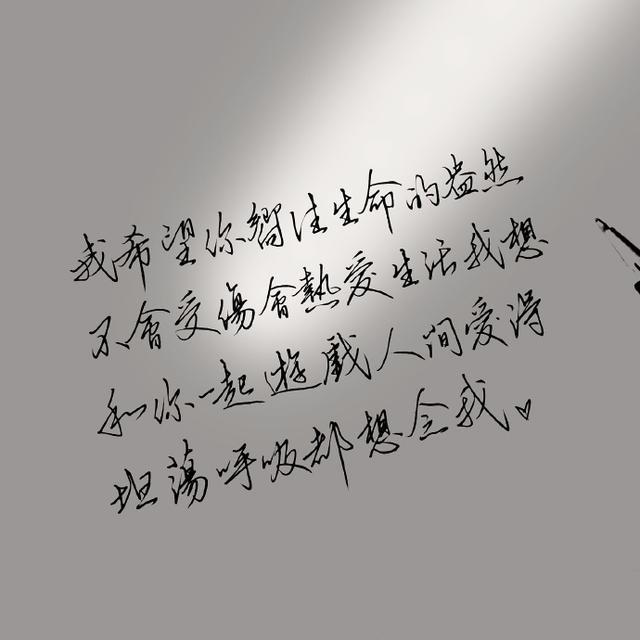 我希望你嚮往生命的盎然
不會受傷會熱愛生活我想
和你一起遊戲人间愛得
坦蕩呼吸都想念我